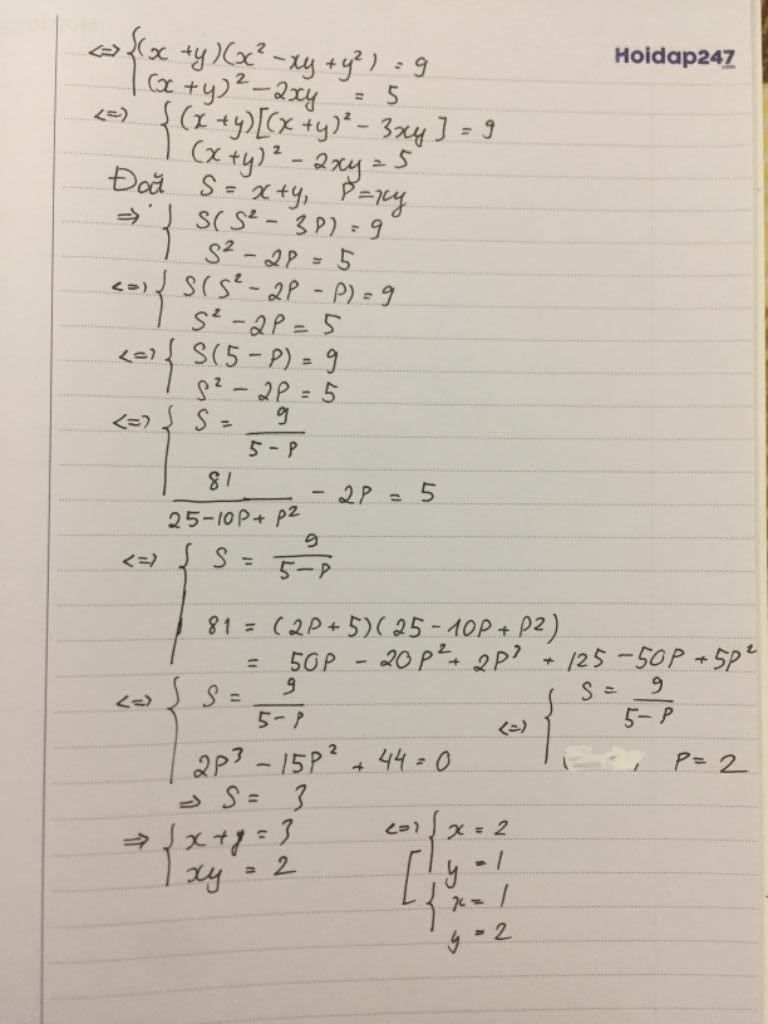 Hoidap247
<=> { (x + y)(x² - xy + y²) = 9
(x + y)² - 2xy = 5
<=> { (x + y)[(x + y)² - 3xy] = 9
(x+y)² - 2xy = 5
Đoă S = x+y, P = xy
=> { S(S² - 3P) = 9
S² - 2P = 5
<=> { S(S² - 2P - P) = 9
S² - 2P = 5
<=> { S(5 - P) = 9
S² - 2P = 5
<=> { S = 9/(5 - P)
81/(25-10P+P²) - 2P = 5
<=> { S = 9/(5-P)
81 = (2P + 5)(25 - 10P + P2)
= 50P - 20P² + 2P³ + 125 - 50P + 5P²
<=> { S = 9/(5-P)
2P³ - 15P² + 44 = 0
<=> { S = 9/(5-P)
P = 2
=> S = 3
=> { x + y = 3
xy = 2
<=> [ { x = 2
y = 1
{ x = 1
y = 2